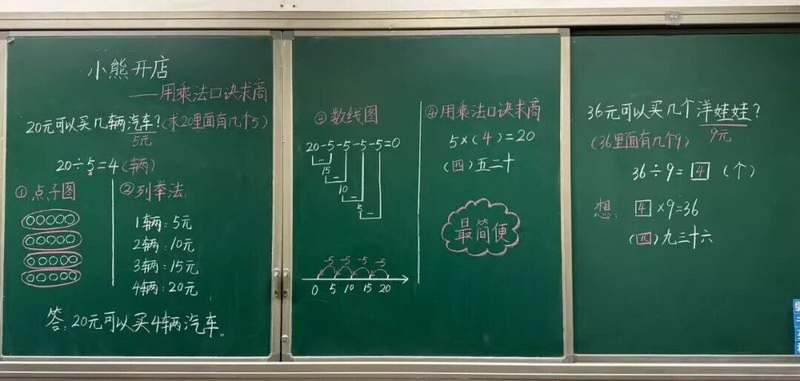 小熊开店
——用乘法口诀求商
20元可以买几辆汽车?(求20里面有几个5)
5元
20÷5=4(辆)
①点子图
②列举法:
1辆:5元
2辆:10元
3辆:15元
4辆:20元
答:20元可以买4辆汽车。
③数线图
20-5-5-5-5=0
15
10
5
-5 -5 -5 -5
0 5 10 15 20
④用乘法口诀求商
5×(4)=20
(四)五二十
最简便
36元可以买几个洋娃娃?
(36里面有几个9) 9元
36÷9=4(个)
想: 4×9=36
(四)九三十六